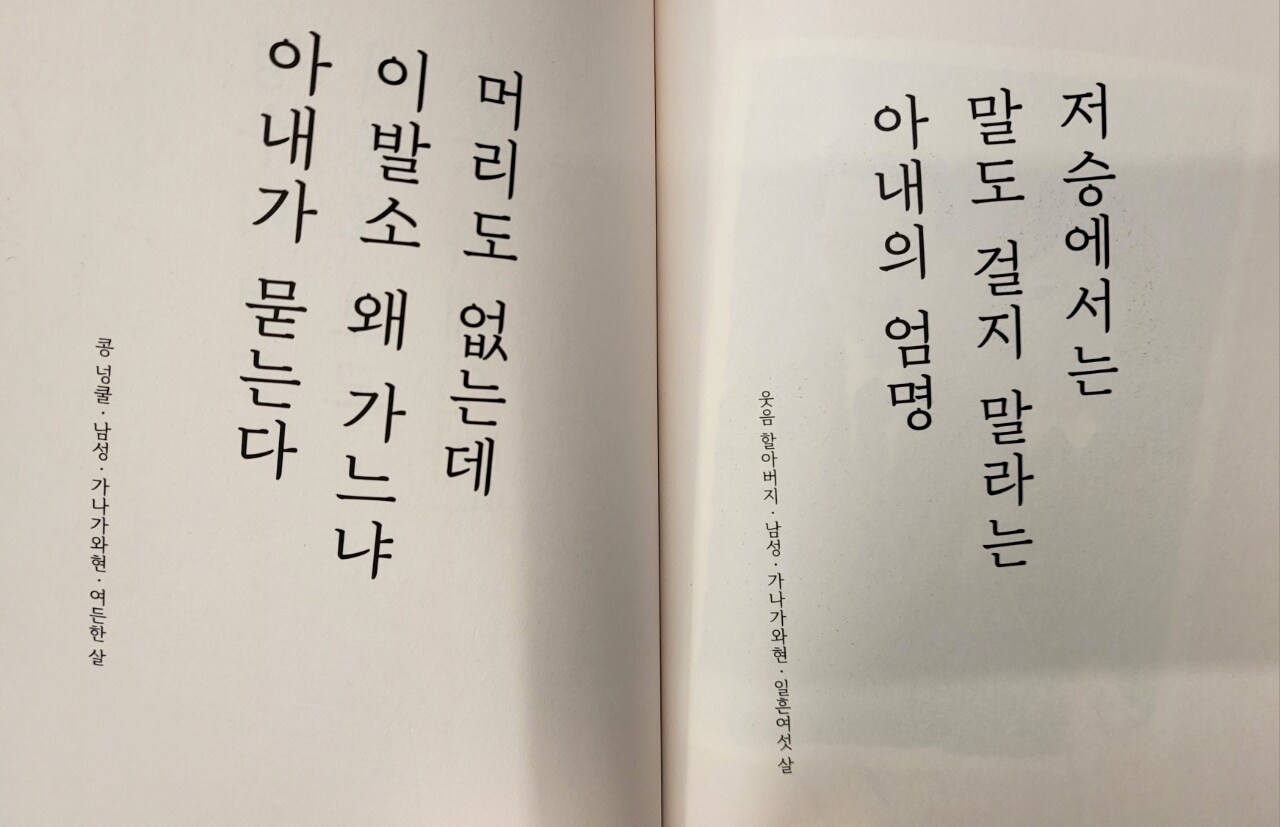 저승에서는
말도 걸지 말라는
아내의 엄명
웃음 할아버지 · 남성 · 가나가와현 · 일흔여섯 살
머리도 없는데
이발소 왜 가느냐
아내가 묻는다
콩 넝쿨 · 남성 · 가나가와현 · 여든한 살